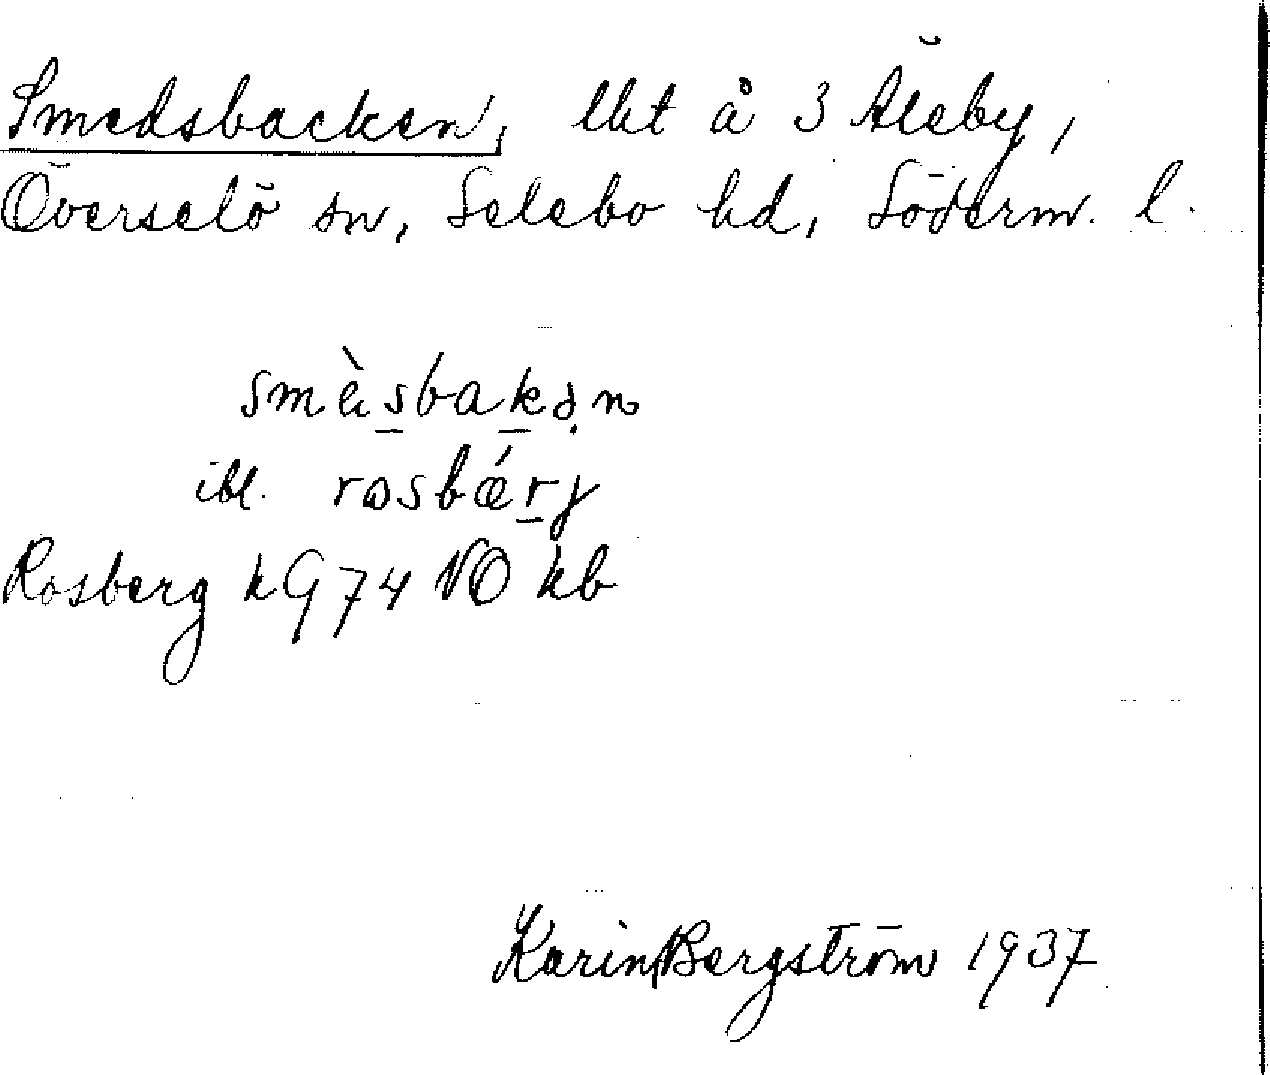 Smedsbacken, lht å 3 Äleby,
Överselö sn, Selebo hd, Söderm. l.
smèsbakən
ibl. rosbǽrj
Rosberg k G 74 NO kb
Karin Bergström 1937